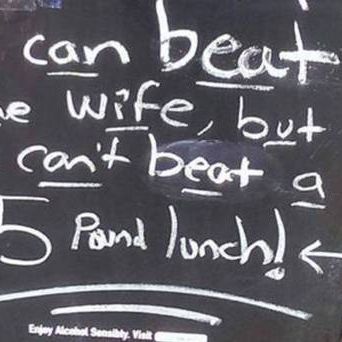 can beat
wife, but
can't beat a
5 Pound lunch! ←
Enjoy Alcohol Sensibly. Visit